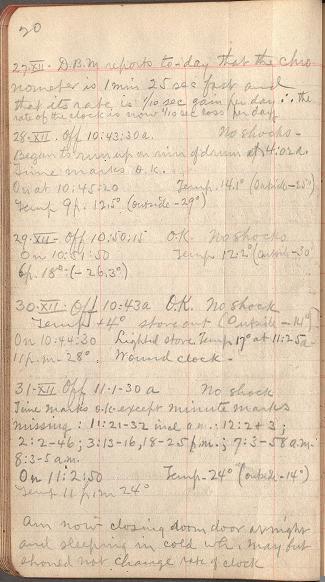 20
27·XII· D.B.M reports to-day that the chro-
nometer is 1 min 25 sec fast and
that its rate is 1/10 sec gain per day ∴ the
rate of the clock is now 4/10 sec loss per day
28·XII· Off 10:43:30a. No shocks-
Began to run up on rim of drum at 4:02a.
Time marks O.K.
On at 10:45:20 Temp. 14.1° (Outside -25°)
Temp 9p. 12.5° (outside -29°)
29·XII- Off 10:50:15 O.K. No shocks
On 10:51:50 Temp. 12.2° (Outside -30°
6p. 18°·(-26.3°)
30·XII· Off 10:43a O.K. No shock
Temp +4° stove out (Outside -14°)
On 10:44:30 Lighted stove Temp 17° at 11:25a
11 p.m - 28°. Wound clock-
31-XII Off 11-1-30 a No shock
Time marks o.k. except minute marks
missing: 11:21-32 incl a.m.: 12:2+3;
2:2-46; 3:13-16, 18-25 p.m.; 7:3-58 a.m.
8:3-5 a.m.
On 11:2:50 Temp-24° (outside-14°)
Temp 11 p.m 24°
Am now closing doom door at night
and sleeping in cold wh. may but
should not change rate of clock